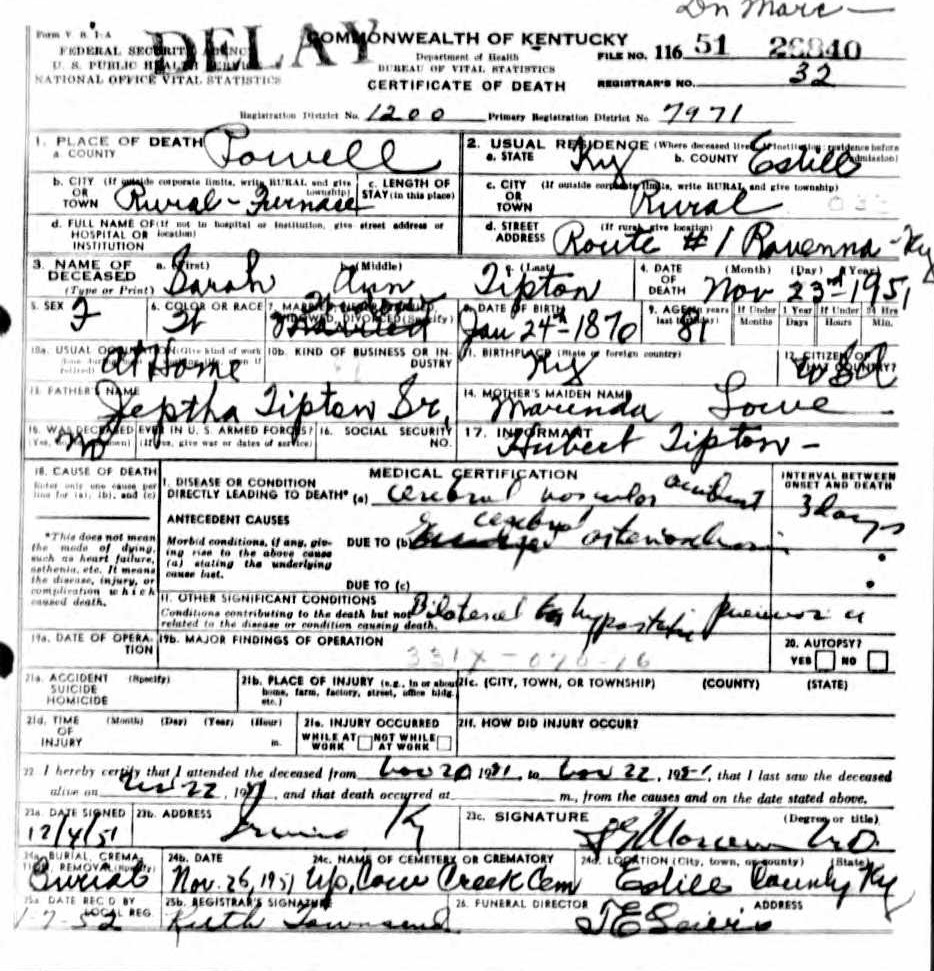 Dn Marc
Form V. S. 1-A
DELAY
COMMONWEALTH OF KENTUCKY
FEDERAL SECURITY AGENCY
Department of Health
FILE NO. 116 51
U. S. PUBLIC HEALTH SERVICE
BUREAU OF VITAL STATISTICS
NATIONAL OFFICE VITAL STATISTICS
CERTIFICATE OF DEATH
REGISTRAR'S NO. 32
Registration District No. 1200 Primary Registration District No. 7971
1. PLACE OF DEATH
a. COUNTY Powell
2. USUAL RESIDENCE (Where deceased lived. If institution: residence before admission)
a. STATE Ky b. COUNTY Estill
b. CITY (If outside corporate limits, write RURAL and give township) OR TOWN Rural - Furnace
c. LENGTH OF STAY (in this place)
c. CITY (If outside corporate limits, write RURAL and give township) OR TOWN Rural
d. FULL NAME OF (If not in hospital or institution, give street address or location) HOSPITAL OR INSTITUTION
d. STREET ADDRESS (If rural, give location) Route #1 Ravenna - Ky
3. NAME OF DECEASED (Type or Print)
a. (First) Sarah b. (Middle) Ann c. (Last) Tipton
4. DATE OF DEATH (Month) (Day) (Year) Nov 23rd 1951
5. SEX F
6. COLOR OR RACE W
7. MARRIED, NEVER MARRIED, WIDOWED, DIVORCED (Specify) Married
8. DATE OF BIRTH Jan 24th 1870
9. AGE (In years last birthday) 81
If Under 1 Year Months Days
If Under 24 Hrs Hours Min.
10a. USUAL OCCUPATION (Give kind of work At Home
10b. KIND OF BUSINESS OR INDUSTRY
11. BIRTHPLACE (State or foreign country) Ky
12. CITIZEN OF WHAT COUNTRY? USA
13. FATHER'S NAME Jeptha Tipton Sr.
14. MOTHER'S MAIDEN NAME Marinda Lowe
15. WAS DECEASED EVER IN U. S. ARMED FORCES? (If yes, give war or dates of service) No
16. SOCIAL SECURITY NO.
17. INFORMANT Hubert Tipton -
18. CAUSE OF DEATH
Enter only one cause per line for (a), (b), and (c)
MEDICAL CERTIFICATION
INTERVAL BETWEEN ONSET AND DEATH
I. DISEASE OR CONDITION DIRECTLY LEADING TO DEATH* (a) cerebral vascular accident 3 days
*This does not mean the mode of dying, such as heart failure, asthenia, etc. It means the disease, injury, or complication which caused death.
ANTECEDENT CAUSES
Morbid conditions, if any, giving rise to the above cause (a) stating the underlying cause last.
DUE TO (b) cerebral
DUE TO (c)
II. OTHER SIGNIFICANT CONDITIONS
Conditions contributing to the death but not related to the disease or condition causing death. Bilateral hypostatic pneumonia
19a. DATE OF OPERATION
19b. MAJOR FINDINGS OF OPERATION
331X-070-16
20. AUTOPSY?
YES NO
21a. ACCIDENT SUICIDE HOMICIDE (Specify)
21b. PLACE OF INJURY (e.g., in or about home, farm, factory, street, office bldg. etc.)
21c. (CITY, TOWN, OR TOWNSHIP) (COUNTY) (STATE)
21d. TIME OF INJURY (Month) (Day) (Year) (Hour) m.
21e. INJURY OCCURRED
WHILE AT WORK NOT WHILE AT WORK
21f. HOW DID INJURY OCCUR?
22. I hereby certify that I attended the deceased from Nov 20 1951, to Nov 22, 1951, that I last saw the deceased
alive on Nov 22, 1951, and that death occurred at m., from the causes and on the date stated above.
23a. DATE SIGNED 12/4/51
23b. ADDRESS Irvine Ky
23c. SIGNATURE (Degree or title)
24a. BURIAL, CREMATION, REMOVAL (Specify) Burial
24b. DATE Nov. 26, 1951
24c. NAME OF CEMETERY OR CREMATORY Up. Cow Creek Cem
24d. LOCATION (City, town, or county) (State) Estill County Ky
25a. DATE REC'D BY LOCAL REG. 1-7-52
25b. REGISTRAR'S SIGNATURE Ruth Townsend
26. FUNERAL DIRECTOR ADDRESS